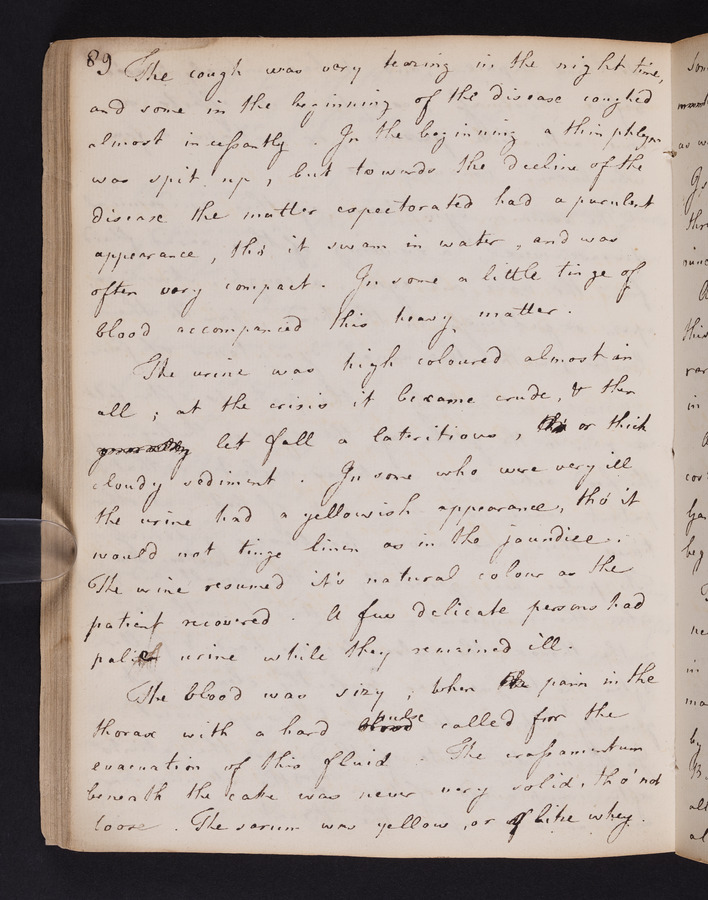 89 The cough was very teazing in the night time,
and some in the beginning of the disease coughed
almost incessantly. In the beginning a thin phlegm
was spit up, but towards the decline of the
disease the matter expectorated had a purulent
appearance, tho' it swam in water, and was
often very compact. In some a little tinge of
blood accompanied this heavy matter.
The urine was high coloured almost in
all; at the crisis it became crude, & then
generally let fall a lateritious, or thick
cloudy sediment. In some who were very ill
the urine had a yellowish appearance, tho' it
would not tinge linen as in the jaundice.
The urine resumed it's natural colour as the
patient recovered. A few delicate persons had
pale urine while they remained ill.
The blood was sizy, when the pain in the
thorax with a hard blood pulse called for the
evacuation of this fluid. The crassamentum
beneath the cake was never very solid, tho' not
loose. The serum was yellow, or like whey.